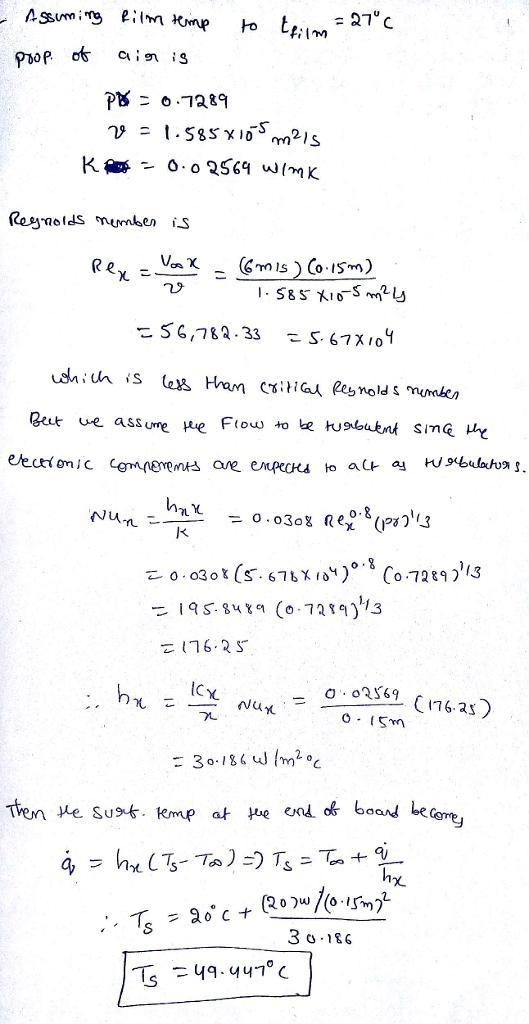 - Assuming film temp to tfilm = 27°C
prop. of air is
pr = 0.7289
ν = 1.585 x 10^-5 m²/s
K = 0.02569 W/mK
Reynolds number is
Rex = V∞x / ν = (6m/s)(0.15m) / 1.585 x10^-5 m²/s
= 56,782.33 = 5.67x10^4
which is less than critical Reynolds number
But we assume the Flow to be turbulent since the
electronic components are expected to act as turbulators.
Nux = hxx / K = 0.0308 Rex^0.8 (pr)^1/3
= 0.0308 (5.678 x 10^4)^0.8 (0.7289)^1/3
= 195.8489 (0.7289)^1/3
= 176.25
∴ hx = Kx / x Nux = 0.02569 / 0.15m (176.25)
= 30.186 W/m²°C
Then the surf. temp at the end of board becomes
q̇ = hx(Ts - T∞) => Ts = T∞ + q̇ / hx
∴ Ts = 20°C + (20)w/(0.15m)² / 30.186
Ts = 49.447°C